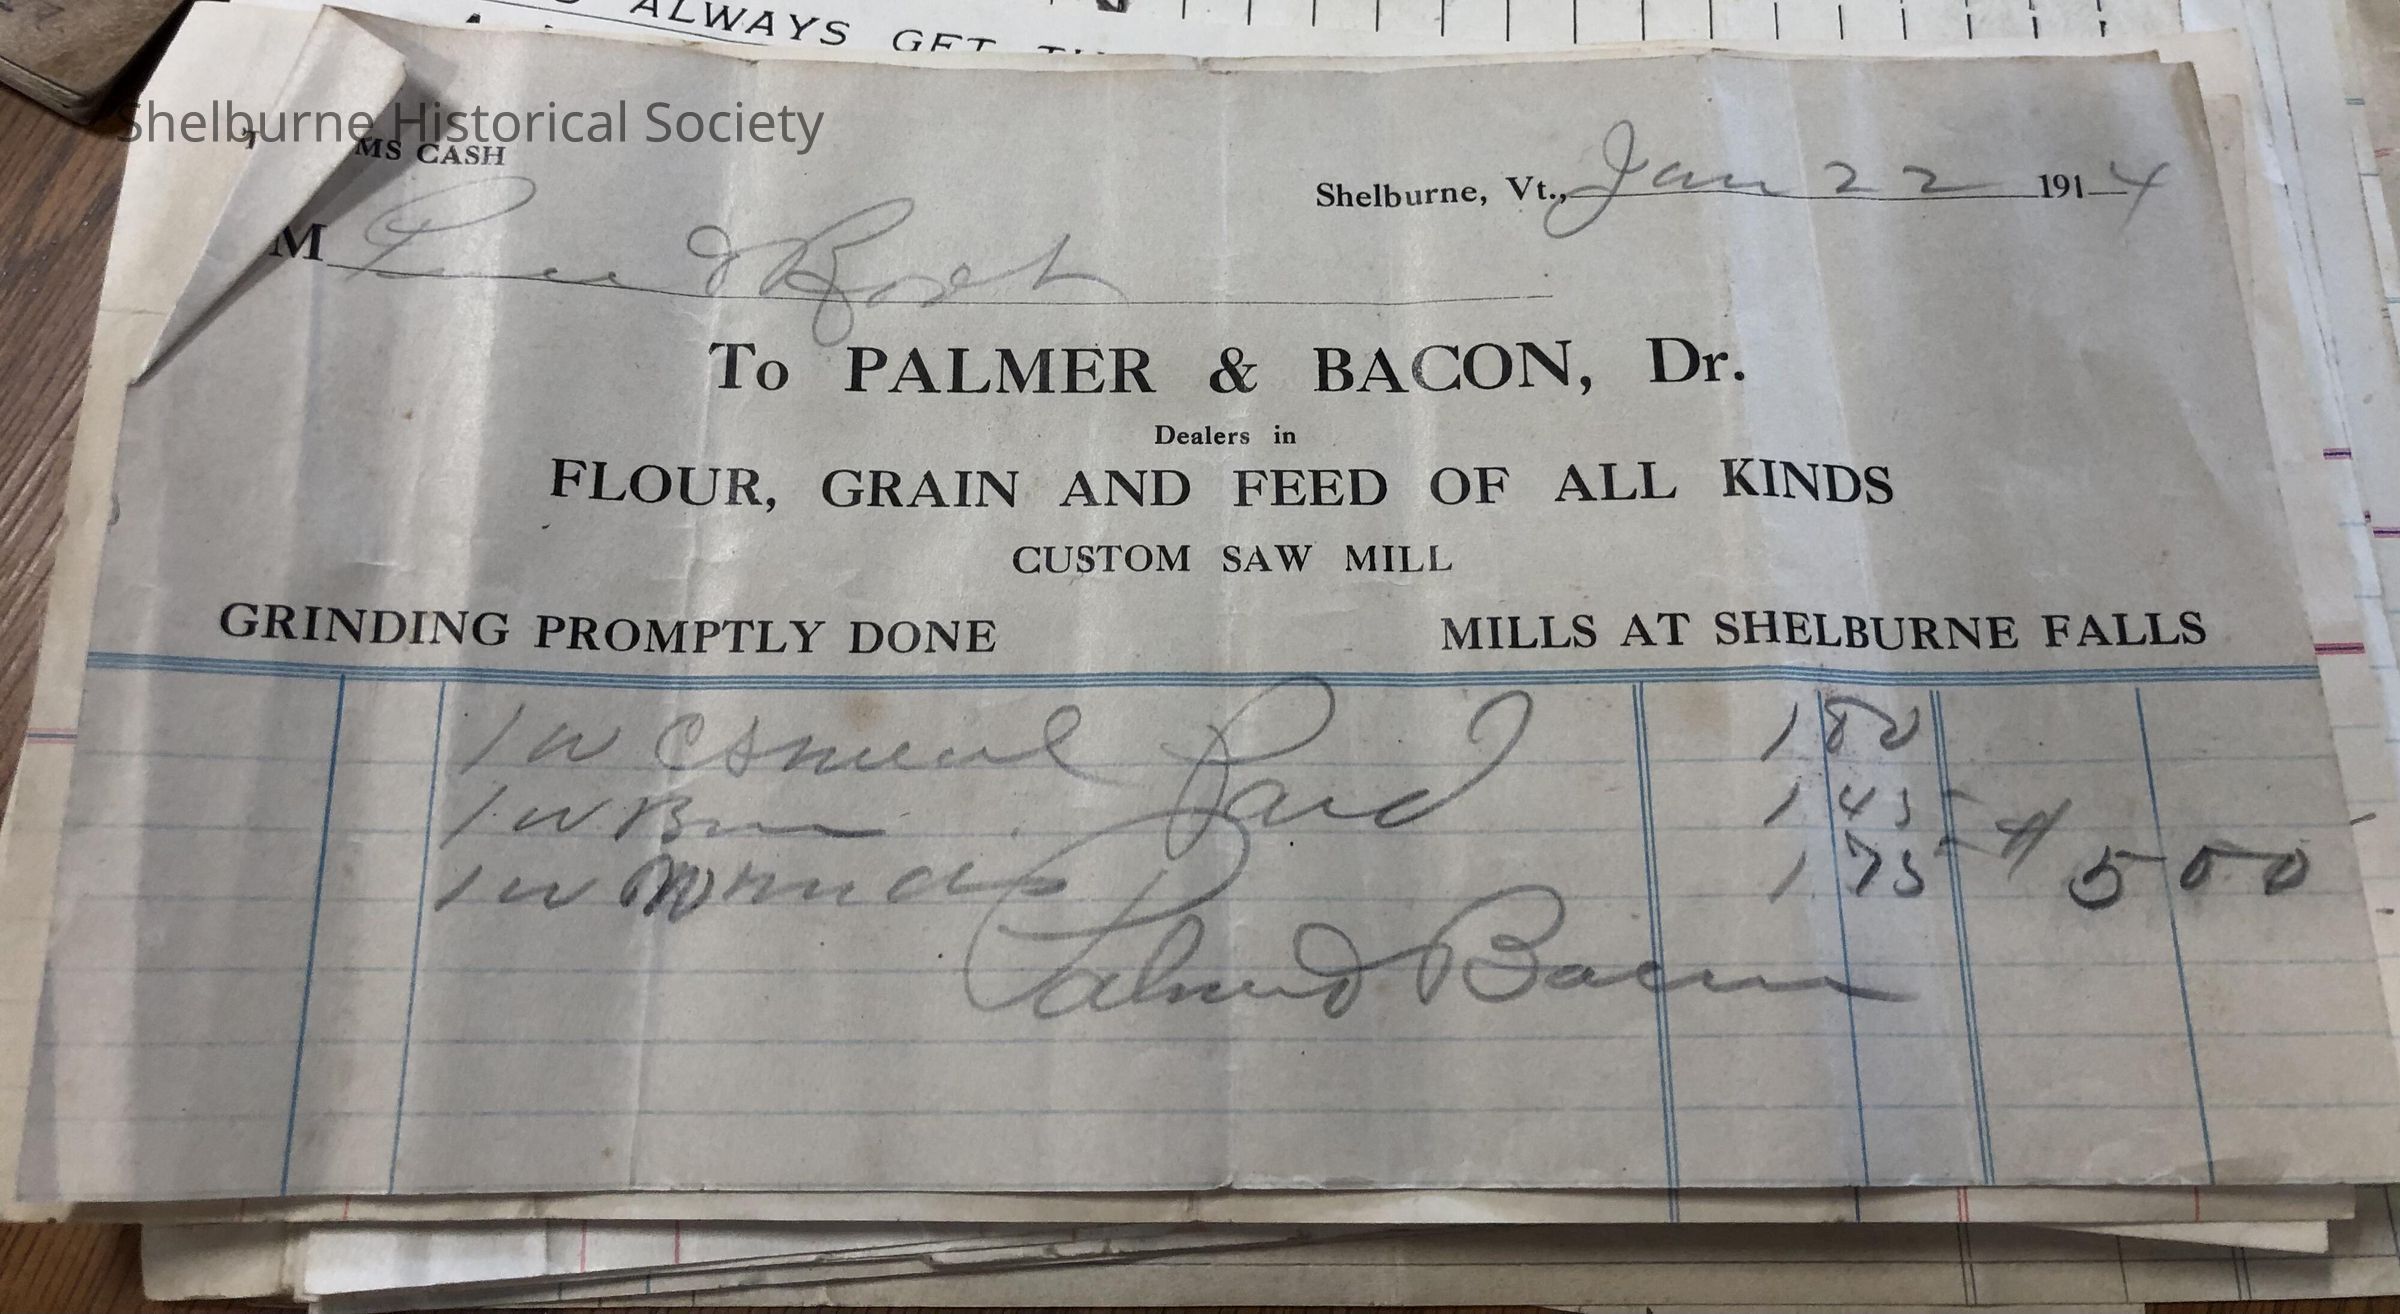 ALWAYS GET
Shelburne Historical Society
MS CASH
Shelburne, Vt., Jan 22 1914
M
To PALMER & BACON, Dr.
Dealers in
FLOUR, GRAIN AND FEED OF ALL KINDS
CUSTOM SAW MILL
GRINDING PROMPTLY DONE MILLS AT SHELBURNE FALLS
1 1 80
1 Paid 1 45
1 1 75 # 5 00
Palmer & Bacon